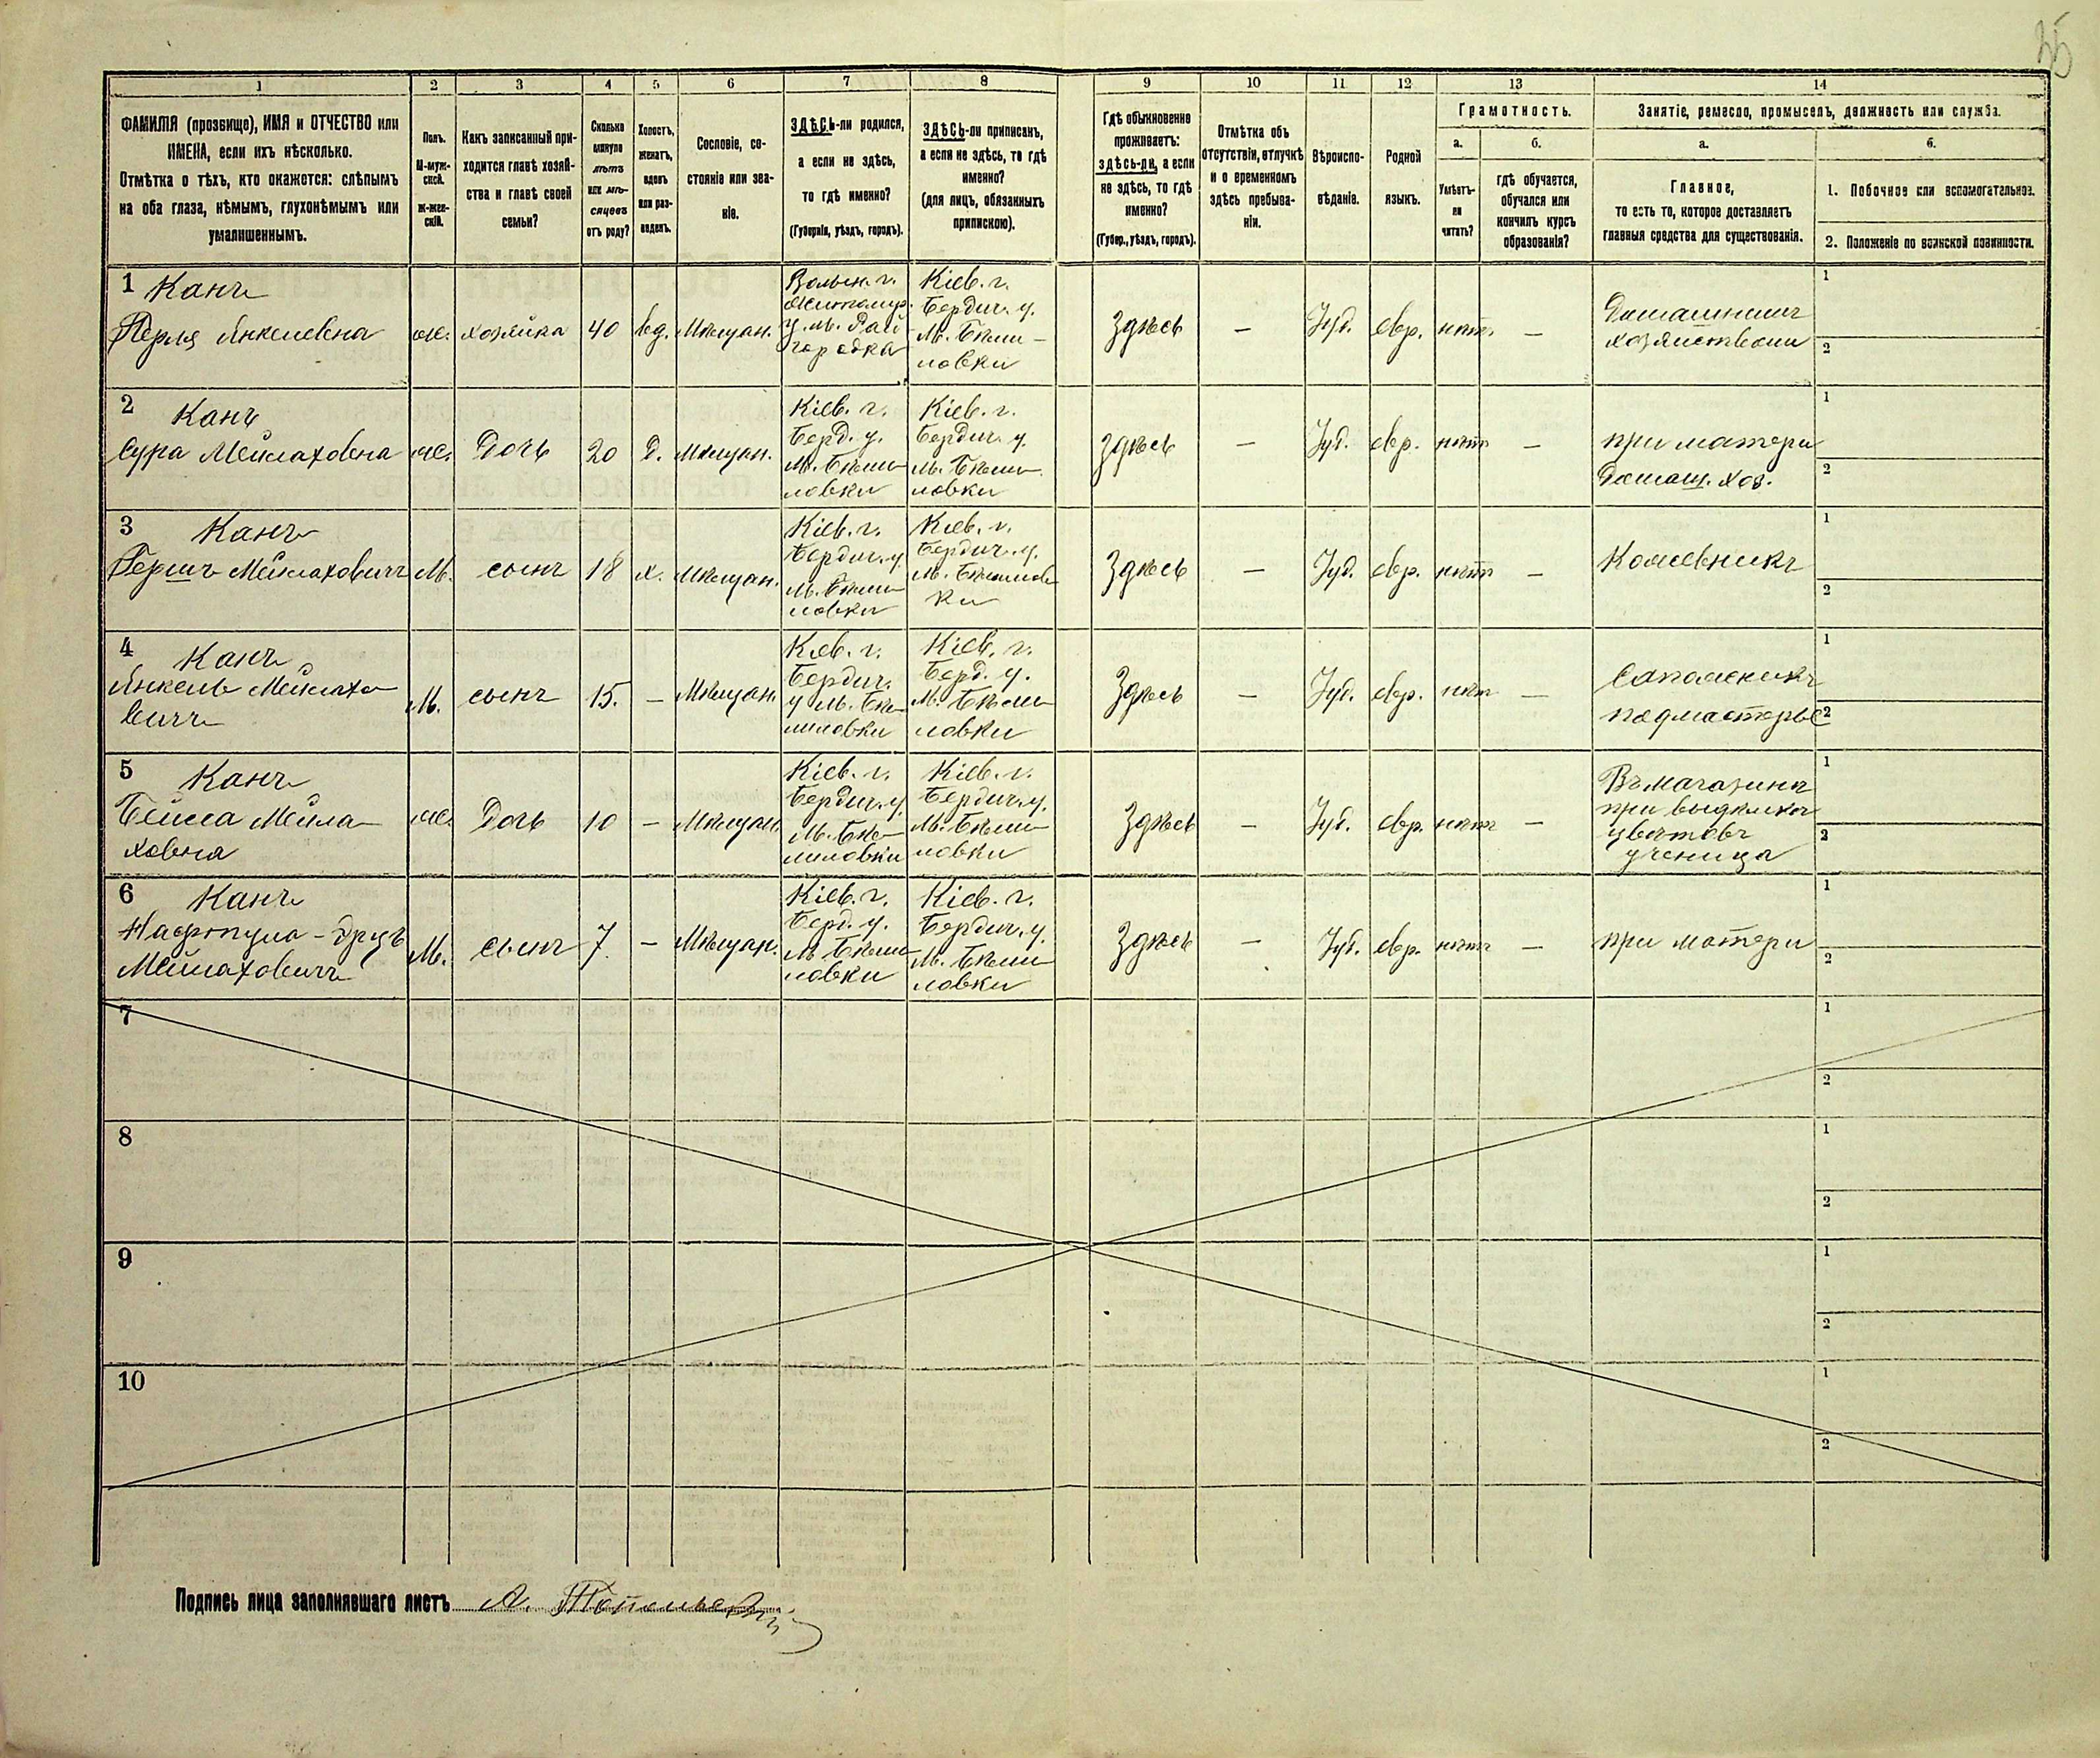 35
1
2
3
4
5
6
7
8
9
10
11
12
13
14
ФАМИЛІЯ (прозвище), ИМЯ и ОТЧЕСТВО или
ИМЕНА, если ихъ нѣсколько.
Отмѣтка о тѣхъ, кто окажется: слѣпымъ
на оба глаза, нѣмымъ, глухонѣмымъ или
умалишеннымъ.
Полъ.
М-муж-
ской.
Ж-жен-
скій.
Какъ записанный при-
ходится главѣ хозяй-
ства и главѣ своей
семьи?
Сколько
минуло
лѣтъ
или мѣ-
сяцевъ
отъ роду?
Холостъ,
женатъ,
вдовъ
или раз-
веденъ.
Сословіе, со-
стояніе или зва-
ніе.
ЗДѢСЬ-ли родился,
а если не здѣсь,
то гдѣ именно?
(Губернія, уѣздъ, городъ).
ЗДѢСЬ-ли приписанъ,
а если не здѣсь, то гдѣ
именно?
(для лицъ, обязанныхъ
припискою).
Гдѣ обыкновенно
проживаетъ:
здѣсь-ли, а если
не здѣсь, то гдѣ
именно?
(Губер., уѣздъ, городъ).
Отмѣтка объ
отсутствіи, отлучкѣ
и о временномъ
здѣсь пребыва-
ніи.
Вѣроиспо-
вѣданіе.
Родной
языкъ.
Грамотность.
а.
Умѣетъ-
ли
читать?
б.
гдѣ обучается,
обучался или
кончилъ курсъ
образованія?
Занятіе, ремесло, промыселъ, должность или служба.
а.
Главное,
то есть то, которое доставляетъ
главныя средства для существованія.
б.
1. Побочное или вспомогательное.
2. Положеніе по воинской повинности.
1
Канъ
Перля Янкелевна
ж.
хозяйка
40
вд.
Мѣщан.
Волын. г.
Житомир.
у. м. Рай
городка
Кіев. г.
Бердич. у.
М. Бѣли-
ловки
Здѣсь
—
Іуд.
евр.
нѣтъ
—
Домашнимъ
хозяйствомъ
1
2
2
Канъ
Сура Мейлаховна
ж.
Дочь
20
Д.
Мѣщан.
Кіев. г.
Берд. у.
М. Бѣли
ловки
Кіев. г.
Бердич. у.
М. Бѣли
ловки
Здѣсь
—
Іуд.
евр.
нѣтъ
—
при матери
Домаш. хоз.
1
2
3
Канъ
Гершъ Мейлаховичъ
М.
сынъ
18
х.
Мѣщан.
Кіев. г.
Бердич. у.
М. Бѣли
ловки
Кіев. г.
Бердич. у.
М. Бѣлилов
ки
Здѣсь
—
Іуд.
евр.
нѣтъ
—
Кожевникъ
1
2
4
Канъ
Янкель Мейлахо
вичъ
М.
сынъ
15.
—
Мѣщан.
Кіев. г.
Бердич.
у м. Бѣ
лиловки
Кіев. г.
Берд. у.
М. Бѣли
ловки
Здѣсь
—
Іуд.
евр.
нѣт
—
Сапожникъ
подмастерье
1
2
5
Канъ
Бейла Мейла
ховна
ж.
Дочь
10
—
Мѣщан.
Кіев. г.
Бердич. у.
М. Бѣ
лиловки
Кіев. г.
Бердич. у.
М. Бѣли
ловки
Здѣсь
—
Іуд.
евр.
нѣтъ
—
Въ магазинѣ
при выдѣлкѣ
цвѣтовъ
ученица
1
2
6
Канъ
Нафтула-Эрцъ
Мейлаховичъ
М.
сынъ
7
—
Мѣщан.
Кіев. г.
Берд. у.
М. Бѣли
ловки
Кіев. г.
Бердич. у.
М. Бѣли
ловки
Здѣсь
—
Іуд.
евр.
нѣтъ
—
при матери
1
2
7
1
2
8
1
2
9
1
2
10
1
2
Подпись лица заполнявшаго листъ А.